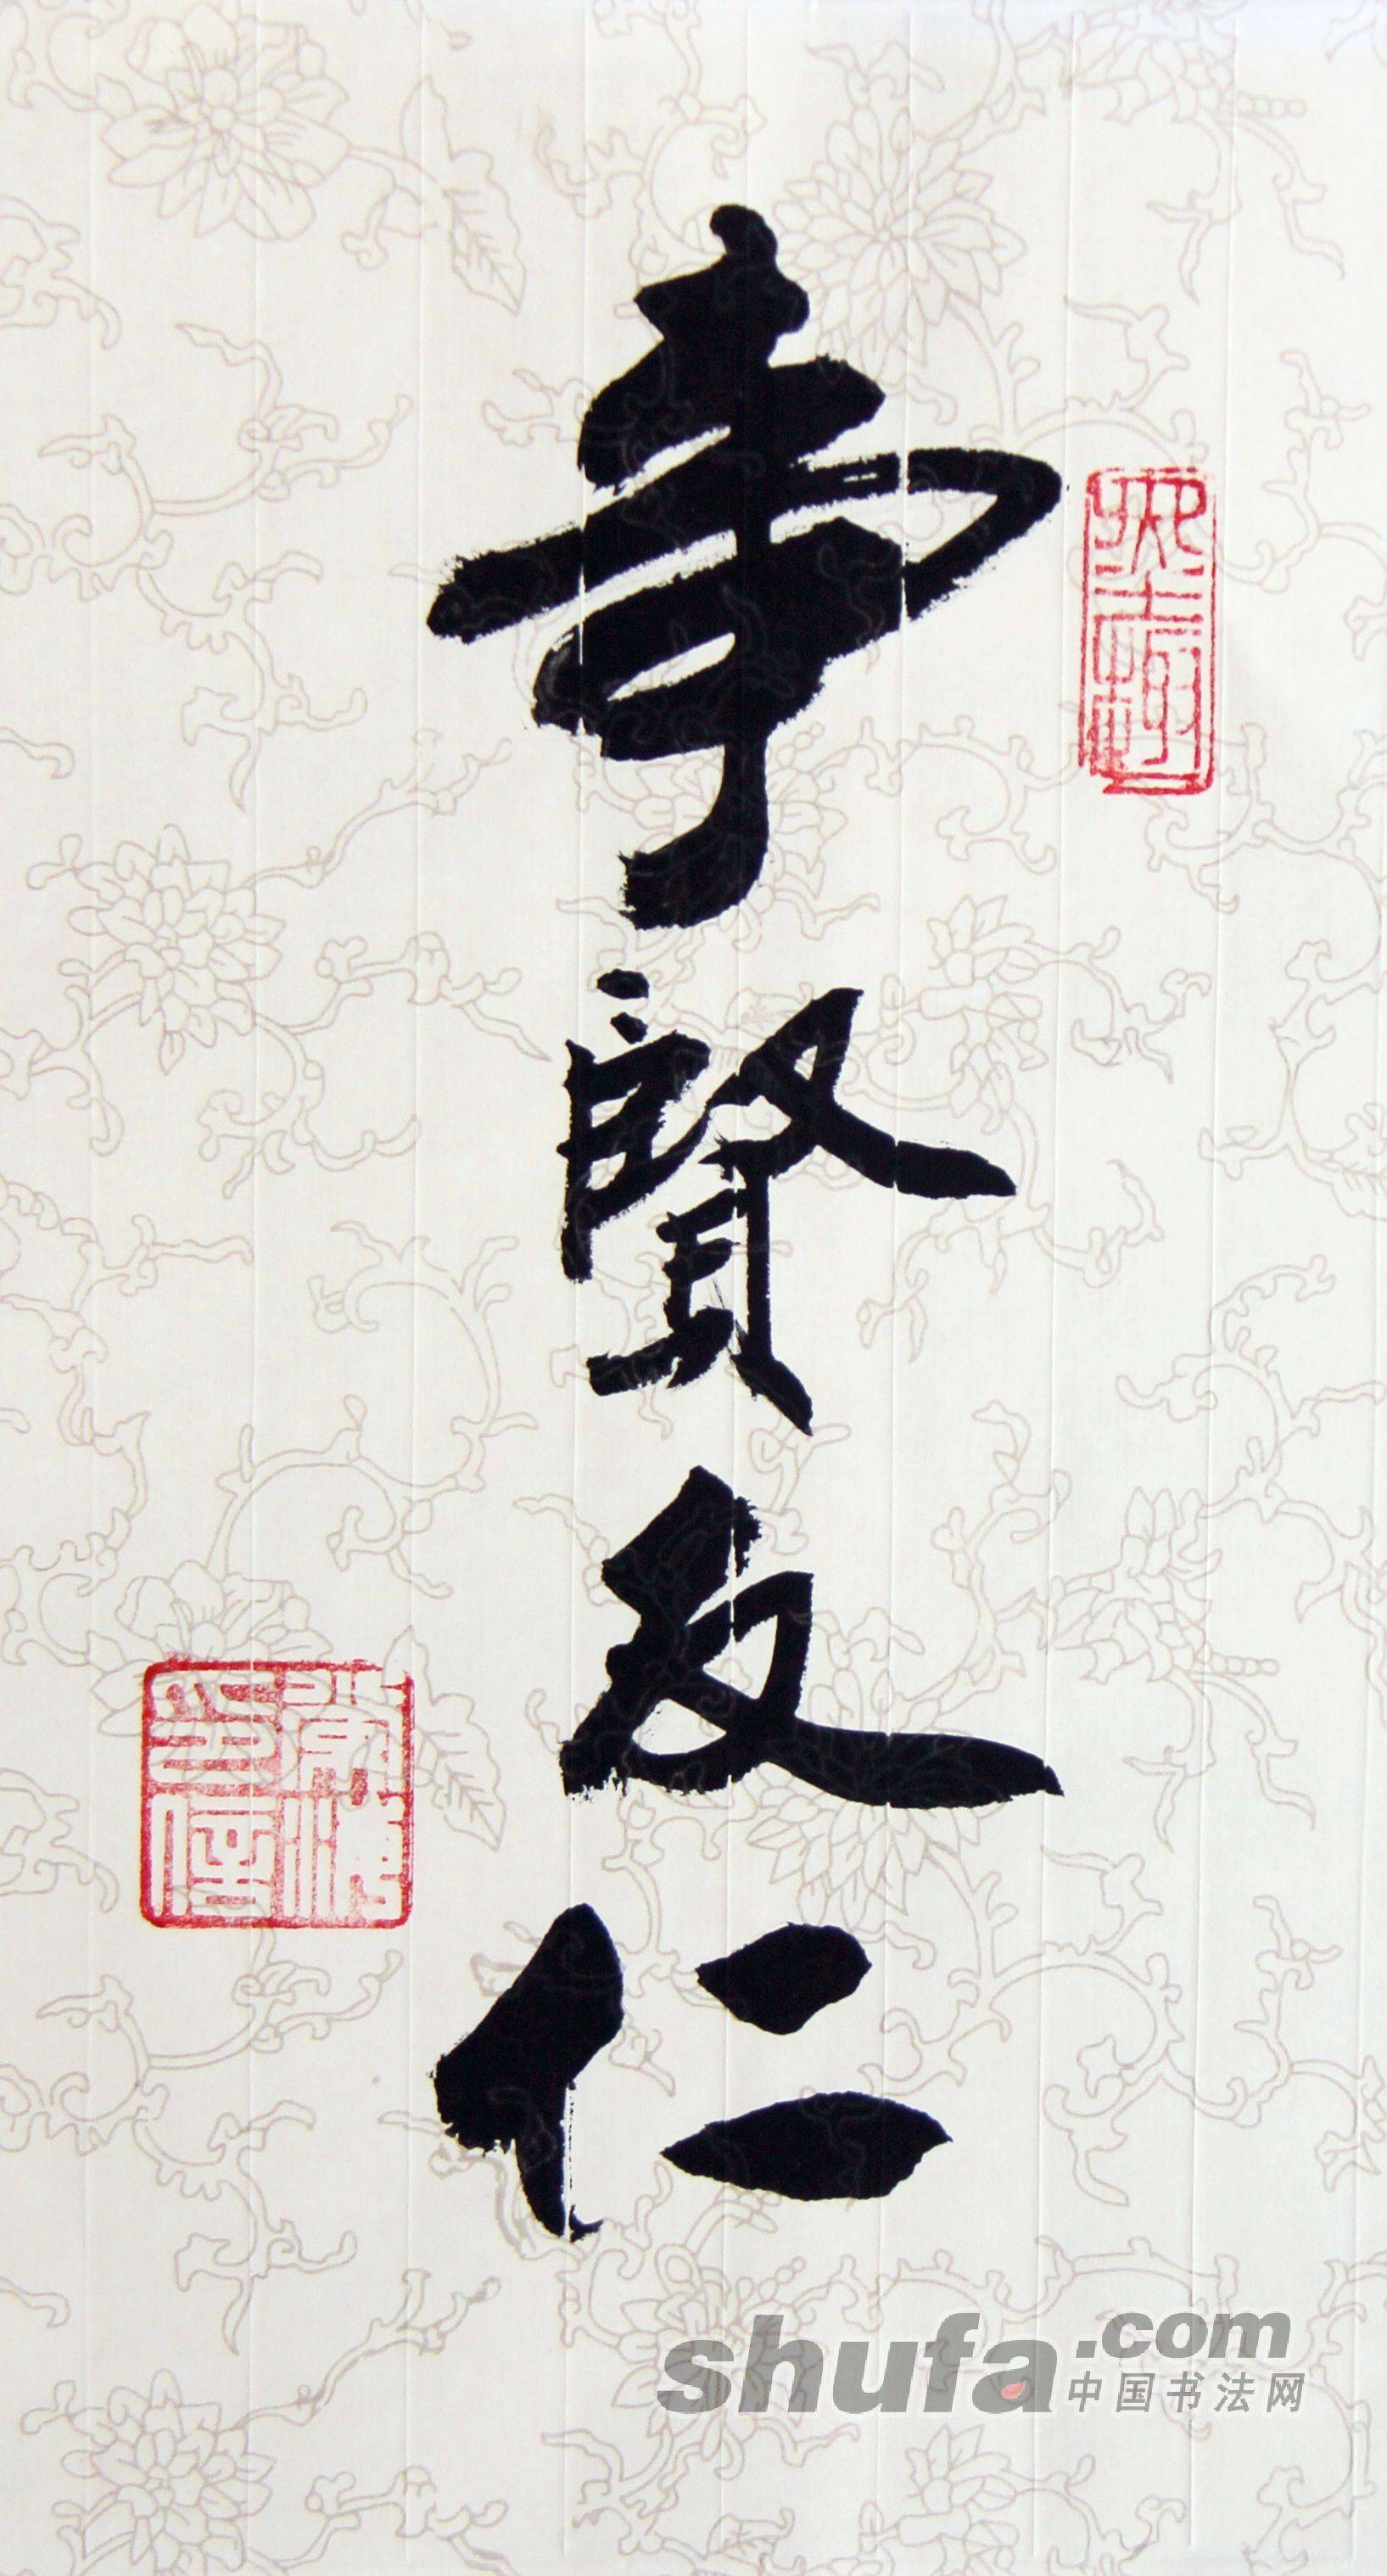 事賢友仁
shufa.com
中国书法网